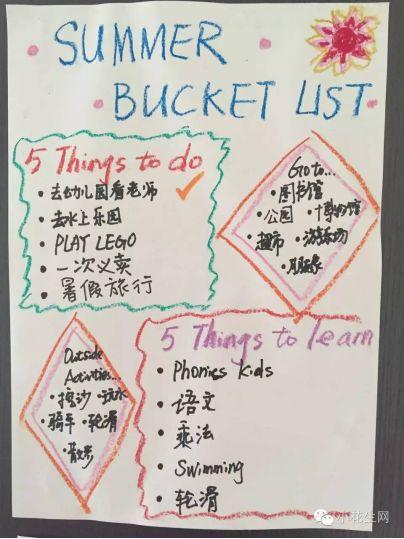 SUMMER
BUCKET LIST
5 Things to do
• 去幼儿园看老师 ✓
• 去水上乐园
• PLAY LEGO
• 一次义卖
• 暑假旅行
Go to...
• 图书馆
• 公园 • 博物馆
• 超市 • 游乐场
Outside
Activities...
• 挖沙 • 玩水
• 骑车 • 轮滑
• 散步
5 Things to learn
• Phonics kids
• 语文
• 乘法
• Swimming
• 轮滑
小花生网